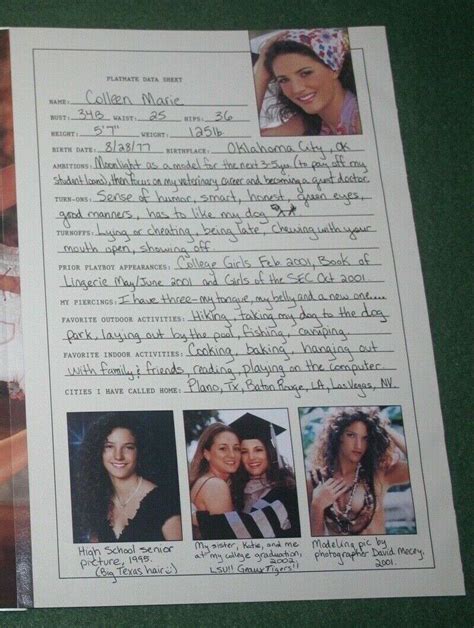 PLAYMATE DATA SHEET
NAME: Colleen Marie
BUST: 34B WAIST: 25 HIPS: 36
HEIGHT: 5'7" WEIGHT: 125lb
BIRTH DATE: 8/28/77 BIRTHPLACE: Oklahoma City, OK
AMBITIONS: Moonlight as a model for the next 3-5yrs (to pay off my
student loans), then focus on my veterinary career and becoming a great doctor.
TURN-ONS: Sense of humor, smart, honest, green eyes,
good manners, has to like my dog
TURNOFFS: Lying or cheating, being late, chewing with your
mouth open, showing off
PRIOR PLAYBOY APPEARANCES: College Girls Feb 2001, Book of
Lingerie May/June 2001 and Girls of the SEC Oct 2001
MY PIERCINGS: I have three-my tongue, my belly and a new one....
FAVORITE OUTDOOR ACTIVITIES: Hiking, taking my dog to the dog
park, laying out by the pool, fishing, camping
FAVORITE INDOOR ACTIVITIES: Cooking, baking, hanging out
with family & friends, reading, playing on the computer
CITIES I HAVE CALLED HOME: Plano, TX, Baton Rouge, LA, Las Vegas, NV.
High School senior
picture, 1995.
(Big Texas hair)
My sister, Katie, and me
at my college graduation,
2002.
LSU!! Geaux Tigers!!
Modeling pic by
photographer David Mecey,
2001.